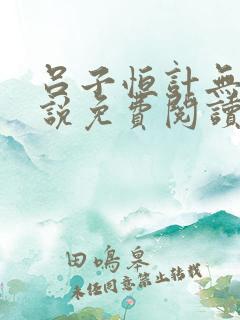 呂子恒計無
說免費閱讀
田鳴皋
未经同意禁止转载